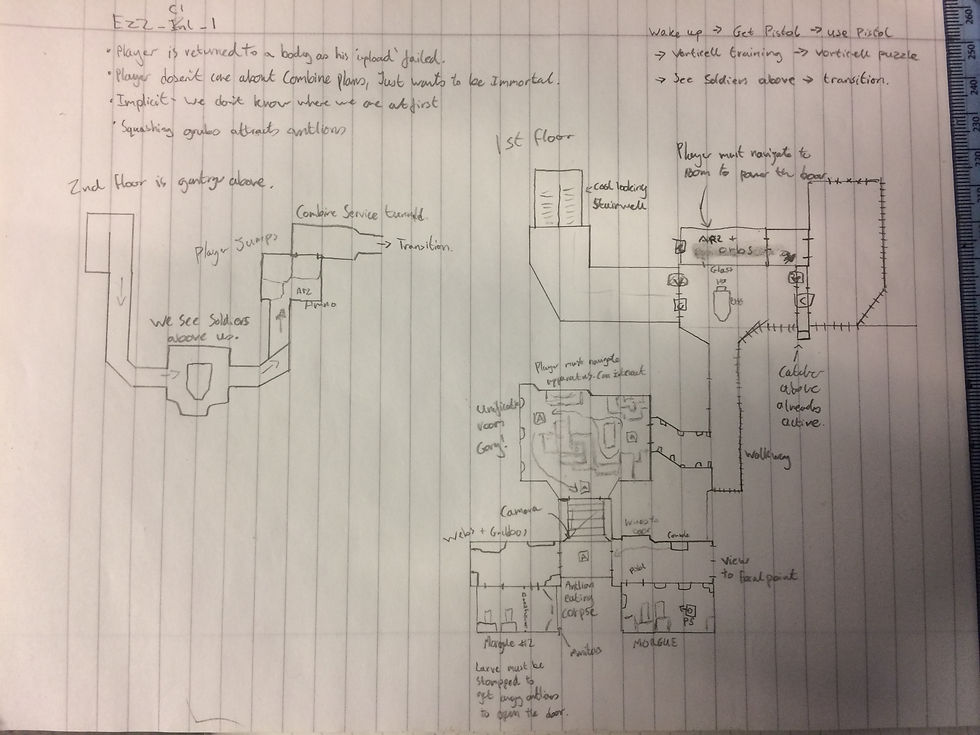 EZ2 _ C1 _ 1
• Player is returned to a body as his 'upload' failed.
• Player doesn't care about Combine Plans, Just wants to be Immortal.
• Implicit - we don't know where we are at first
• Squashing grubs attracts antlions
Wake up → Get Pistol → use Pistol
→ Vorticell training → vorticell puzzle
→ See Soldiers above → transition.
2nd Floor is gantry above.
Combine Service tunnel.
→ Transition.
Player Jumps
AR2
Ammo
We see Soldiers
above us.
1st Floor
← Cool looking
Stairwell
Player must navigate to
room to power the door
AR2 +
orbs
Glass
Catcher
above
already
active.
Walkway
Player must navigate
apparatus. Can interact
room
Gory!
A
A
A
Camera
Webs + Grubbos
Wires to
Console
A
Pistol
View
to Focal point
Antlion
eating
corpse
PS
Morgue #2
MORGUE
Larve must be
stomped to
get angry antlions
to open the door.